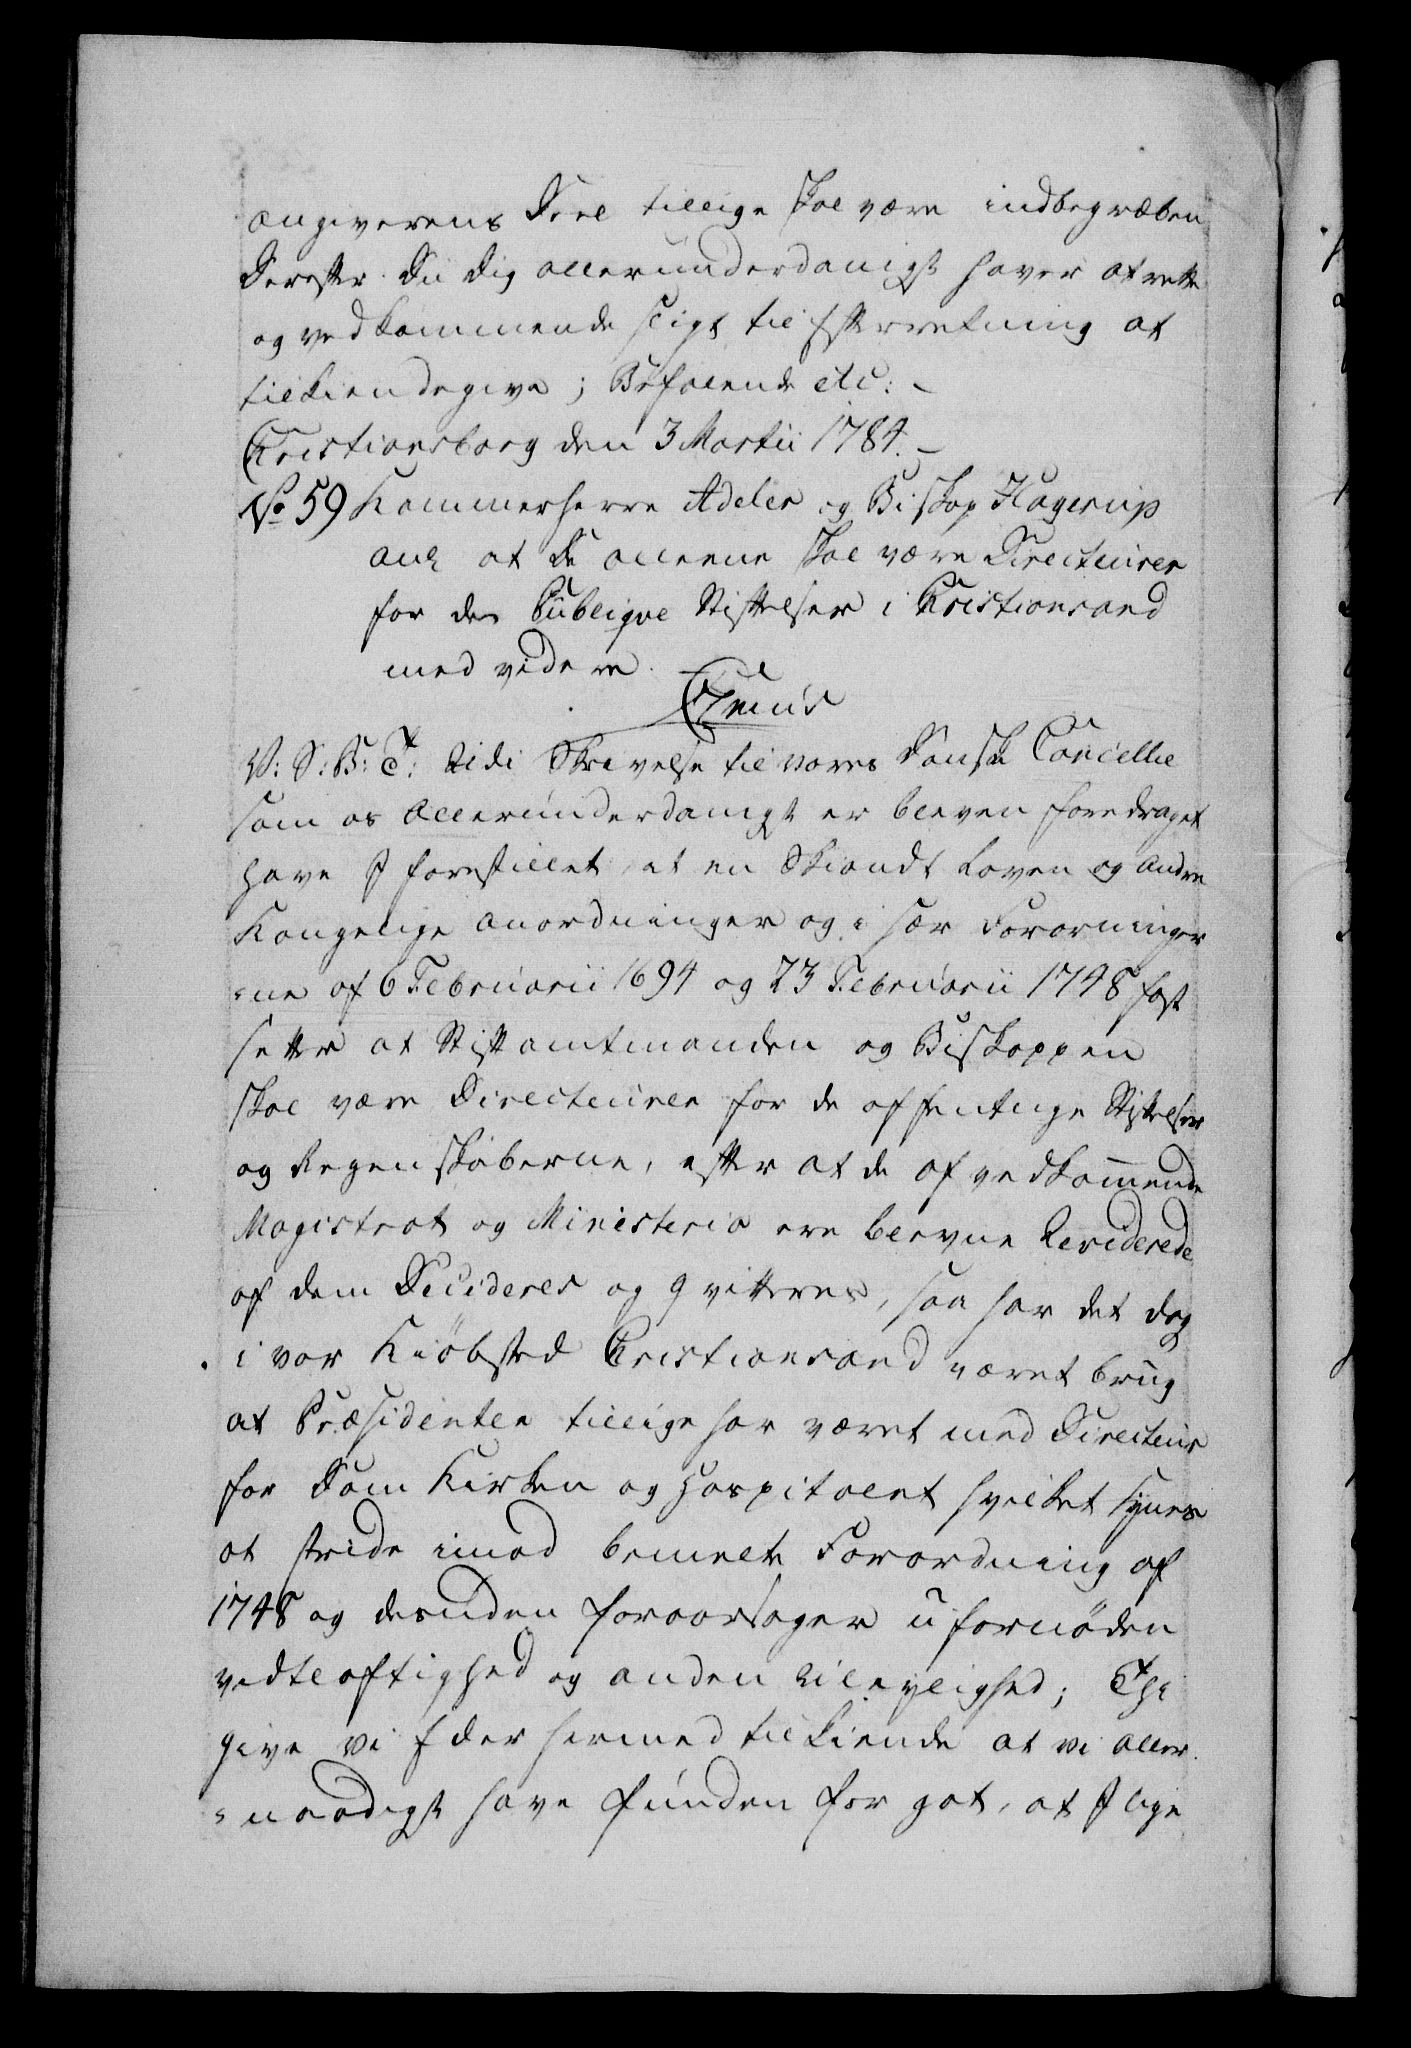 angiverens Deel tillige skal være indbegræben
Derefter Du Dig allerunderdanigst haver at rette
og vedkommende sligt til Efterretning at
tilkiendegive; Befalende etc: -
Christiansborg den 3 Martii 1784. -
No 59 Kammerherre Adeler og Biskop Hagerup
ang at De alleene skal være Directeurer
for de Publiqve Stiftelser i Christiansand
med videre.
V: S: B: T: Udi Skrivelse til vores Danske Cancellie
som os Allerunderdanigst er bleven foredraget
have I forestillet, at en Skiøndt Loven og andre
Kongelige anordninger og i sær Forordninger
-ne af 6 Februarii 1694 og 23 Februarii 1748 fast
sætter at Stiftamtmanden og Biskoppen
skal være Directeurer for de offentlige Stiftelser
og Regenskaberne, efter at de af vedkommende
Magistrat og Ministerio ere blevne Reviderede
af dem Decideres og qvitteres, saa har det dog
i vor Kiøbsted Christiansand været brug
at Præsidenten tillige har været med Directeur
for Dom Kirken og Hospitalet hvilket synes
at stride imod bemelte Forordning af
1748 og desuden foraarsager ufornøden
vidtløftighed og anden uleylighed; Thi
give vi Eder hermed tilkiende at vi aller
-naadigst have funden for got, at I lige